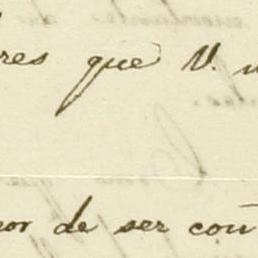 res que V.
or de ser con